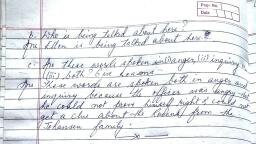 Page No.
Date
b. Who is being talked about here?
Ans Ellen is being talked about here.
c. Are these words spoken in (i) anger, (ii) inquiry or
(iii) both? Give reasons.
Ans These words are spoken both in anger and
inquiry because the officer was angry that
he could not prove himself right & could not
get a clue about the from the
Johansen family.